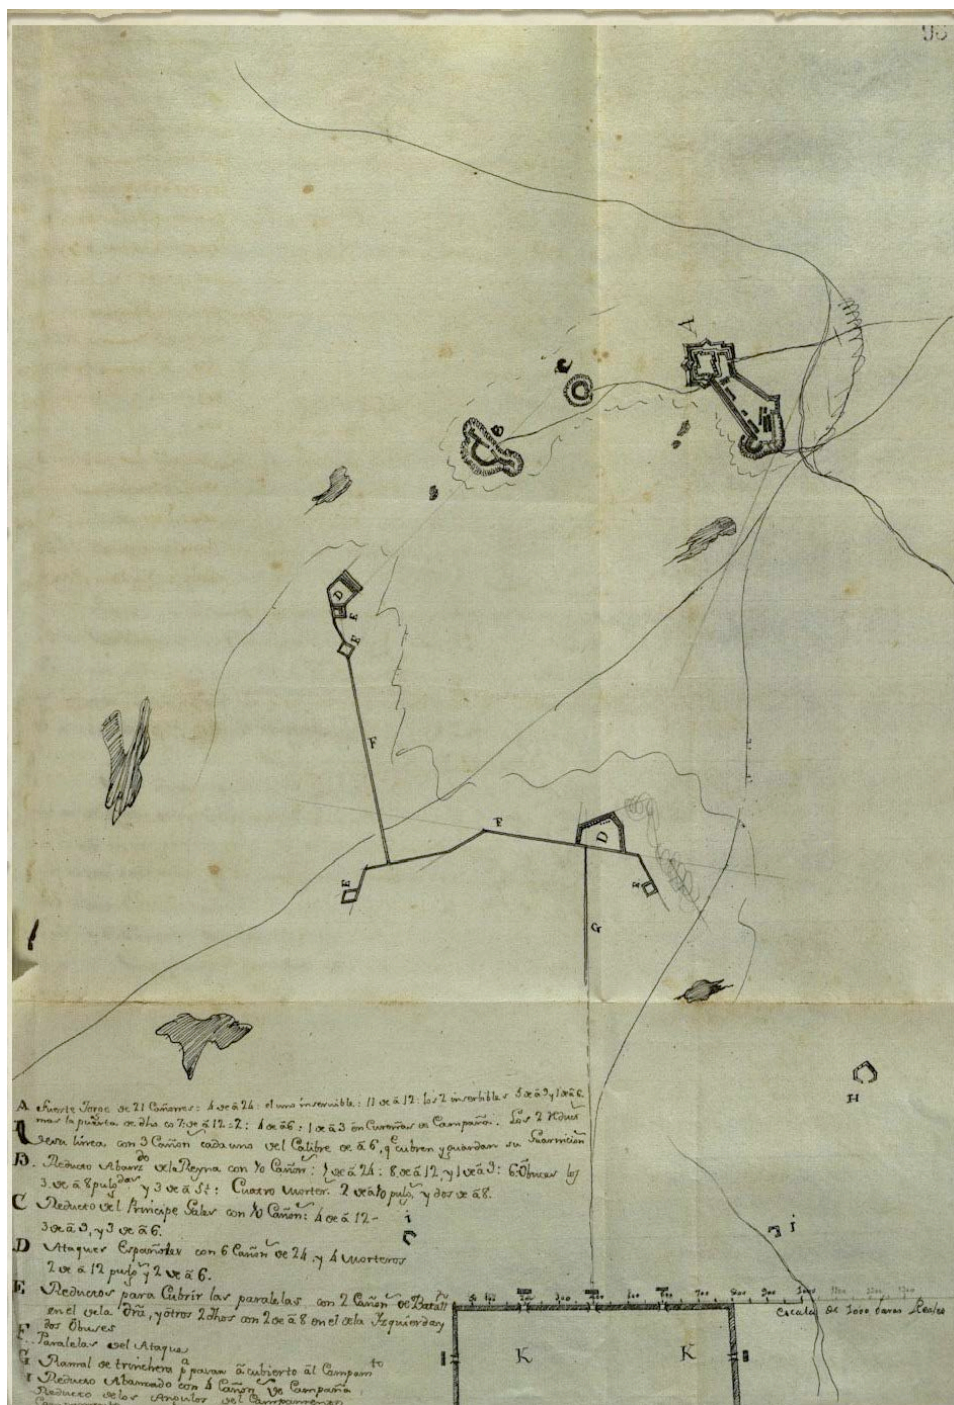 98
A
C
B
D
E
F
F
F
D
E
E
G
H
A Fuerte Jorge de 21 Cañones: 4 de â 24: el uno inservible: 11 de â 12: los 2 inserbibles 5 de â 9 y 1 de â 6
mas la puerta de dho co 7: de â 12=2: 4 de â 6: 1 de â 3 en Cureñas de Campaña. Los 2
linea con 3 Cañon cada uno del Calibre de â 6, q cubren y guardan su Guarnicion
B. Reducto Abanz.do de la Reyna con 10 Cañon: 1 de â 24: 8 de â 12, y 1 de â 9: 6 Obuses los
3 de â 8 pulg.das y 3 de â 5½: Cuatro morter. 2 de â 10 pulg, y dos de â 8.
C Reducto del Principe Gales con 10 Cañon: 4 de â 12-
3 de â 9, y 3 de â 6.
i
i
D Ataques Españoles con 6 Cañon de 24 y 4 morteros
2 de â 12 pulg y 2 de â 6.
E Reductos para Cubrir las paralelas con 2 Cañon de Batall
en el de la Dra, y otros 2 dhos con 2 de â 8 en el de la Izquierda y
dos Obuses
F. Paralelas del Ataque
G Ramal de trinchera p.a pasar â cubierto âl Campam.to
Reducto Abanzado con 4 Cañon de Campaña
Reducto de los Angulos del Campamento
50 100 200 300 400 500 600 700 800 900 1000 1100 1200 1300
Escala de 1000 Varas Reales
K K